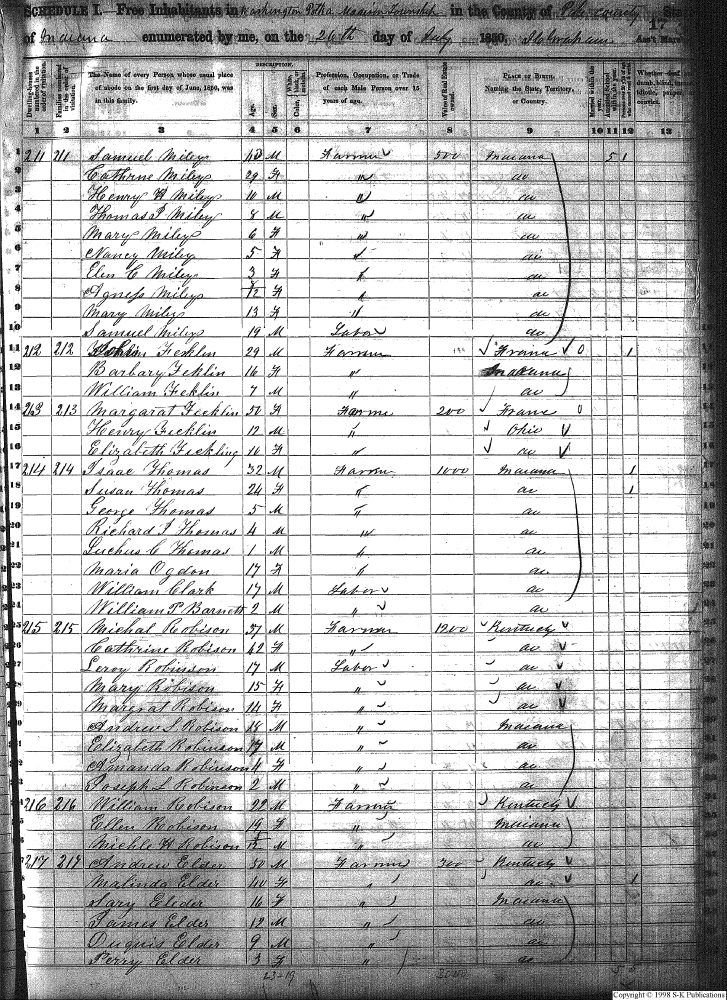 SCHEDULE I.—Free Inhabitants in Washington Township in the County of Pike County State
of Indiana enumerated by me, on the 26th day of July 1850. Ass't Mars
17
DESCRIPTION.
Dwelling-houses numbered in the order of visitation.
Families numbered in the order of visitation.
The Name of every Person whose usual place of abode on the first day of June, 1850, was in this family.
Age.
Sex.
White, black, or mulatto.
Color,
Profession, Occupation, or Trade of each Male Person over 15 years of age.
Value of Real Estate owned.
PLACE OF BIRTH. Naming the State, Territory, or Country.
Married within the year.
Whether deaf and dumb, blind, insane, idiotic, pauper or convict.
1 2 3 4 5 6 7 8 9 10 11 12 13
1 211 211 Samuel Miley M Farmer 500 Indiana 5 1
Cathrine Miley 29 F " do
Henry H Miley 10 M " do
Thomas P Miley 8 M " do
Mary Miley 6 F " do
Nancy Miley 5 F " do
Elen C Miley 3 F " do
Agness Miley /12 F " do
Mary Miley 13 F " do
Samuel Miley 19 M Labor do
212 212 Ficklin 29 M Farmer France 0 1
Barbary Ficklin 16 F " Indiana
William Ficklin 7 M " do
213 213 Margarat Ficklin 50 F Farme 200 France 0
Henry Ficklin 12 M " Ohio
Elizabeth Fickling 10 F " do
214 214 Isaac Thomas 32 M Farmer 1000 Indiana 1
Susan Thomas 24 F " do 1
George Thomas 5 M " do
Richard J Thomas 4 M " do
Luchus C Thomas 1 M " do
Maria Ogdon 17 F " do
William Clark 17 M Labor do
William P Barnett 2 M " do
215 215 Michal Robison 37 M Farmer 1200 Kentucky
Cathrine Robison 42 F " do
Leroy Robinson 17 M Labor do
Mary Robison 15 F " do
Margrat Robison 14 F " do
Andrew S Robison 18 M " Indiana
Elizabeth Robinson M " do
Amanda Robinson 4 F " do
Joseph L Robinson 2 M " do
216 216 William Robison 22 M Farmer Kentucky
Ellen Robison 19 F " Indiana
Michle H Robison /12 M " do
217 217 Andrew Elder 50 M Farmer 300 Kentucky
Malinda Elder 40 F " do 1
Elder 16 F " Indiana
James Elder 12 M " do
Elder 9 M " do
Perry Elder 3 F " do
23-19 5 5
Copyright © 1998 S-K Publications